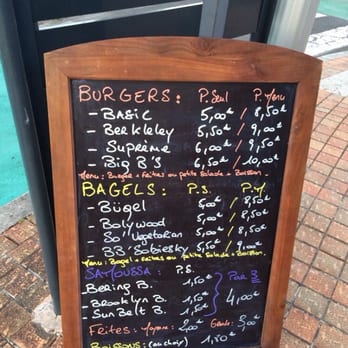 BURGERS: P. Seul P. Menu
- BASIC 5,00€ / 8,50€
- BERKLELEY 5,50€ / 9,00€
- SUPRÊME 6,00€ / 9,50€
- BIG B'S 6,50€ / 10,00€
Menu: Burger + Frites ou petite Salade + Boisson.
BAGELS: P.S. P.M
- Bügel 5,00€ / 8,50€
- Bolywood 5,00€ / 8,50€
- So' Vegetarian 5,00€ / 8,50€
- BB Sobiesky 5,50€ / 9,00€
Menu: Bagel + Frites ou petite Salade + Boisson.
SAMOUSSA: P.S. Par 3
- Bering B. 1,50€
- Brooklyn B. 1,50€ 4,00€
- Sun Belt B. 1,50€
FRITES: Moyenne: 2,00€ Grande: 3,00€
BOISSONS: (au choix) 1,50€